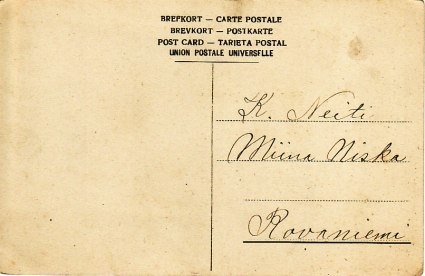 BREFKORT — CARTE POSTALE
BREVKORT — POSTKARTE
POST CARD — TARJETA POSTAL
UNION POSTALE UNIVERSELLE
K. Neiti
Miina Niska
Rovaniemi